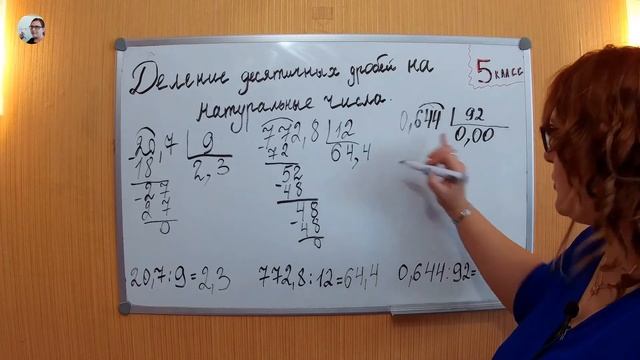 Деление десятичных дробей на
натуральные числа.
5 класс
20,7 | 9
- 18 2,3
27
- 27
0
772,8 | 12
- 72 64,4
52
- 48
48
- 48
0
0,644 | 92
0,00
20,7:9=2,3
772,8:12=64,4
0,644:92=